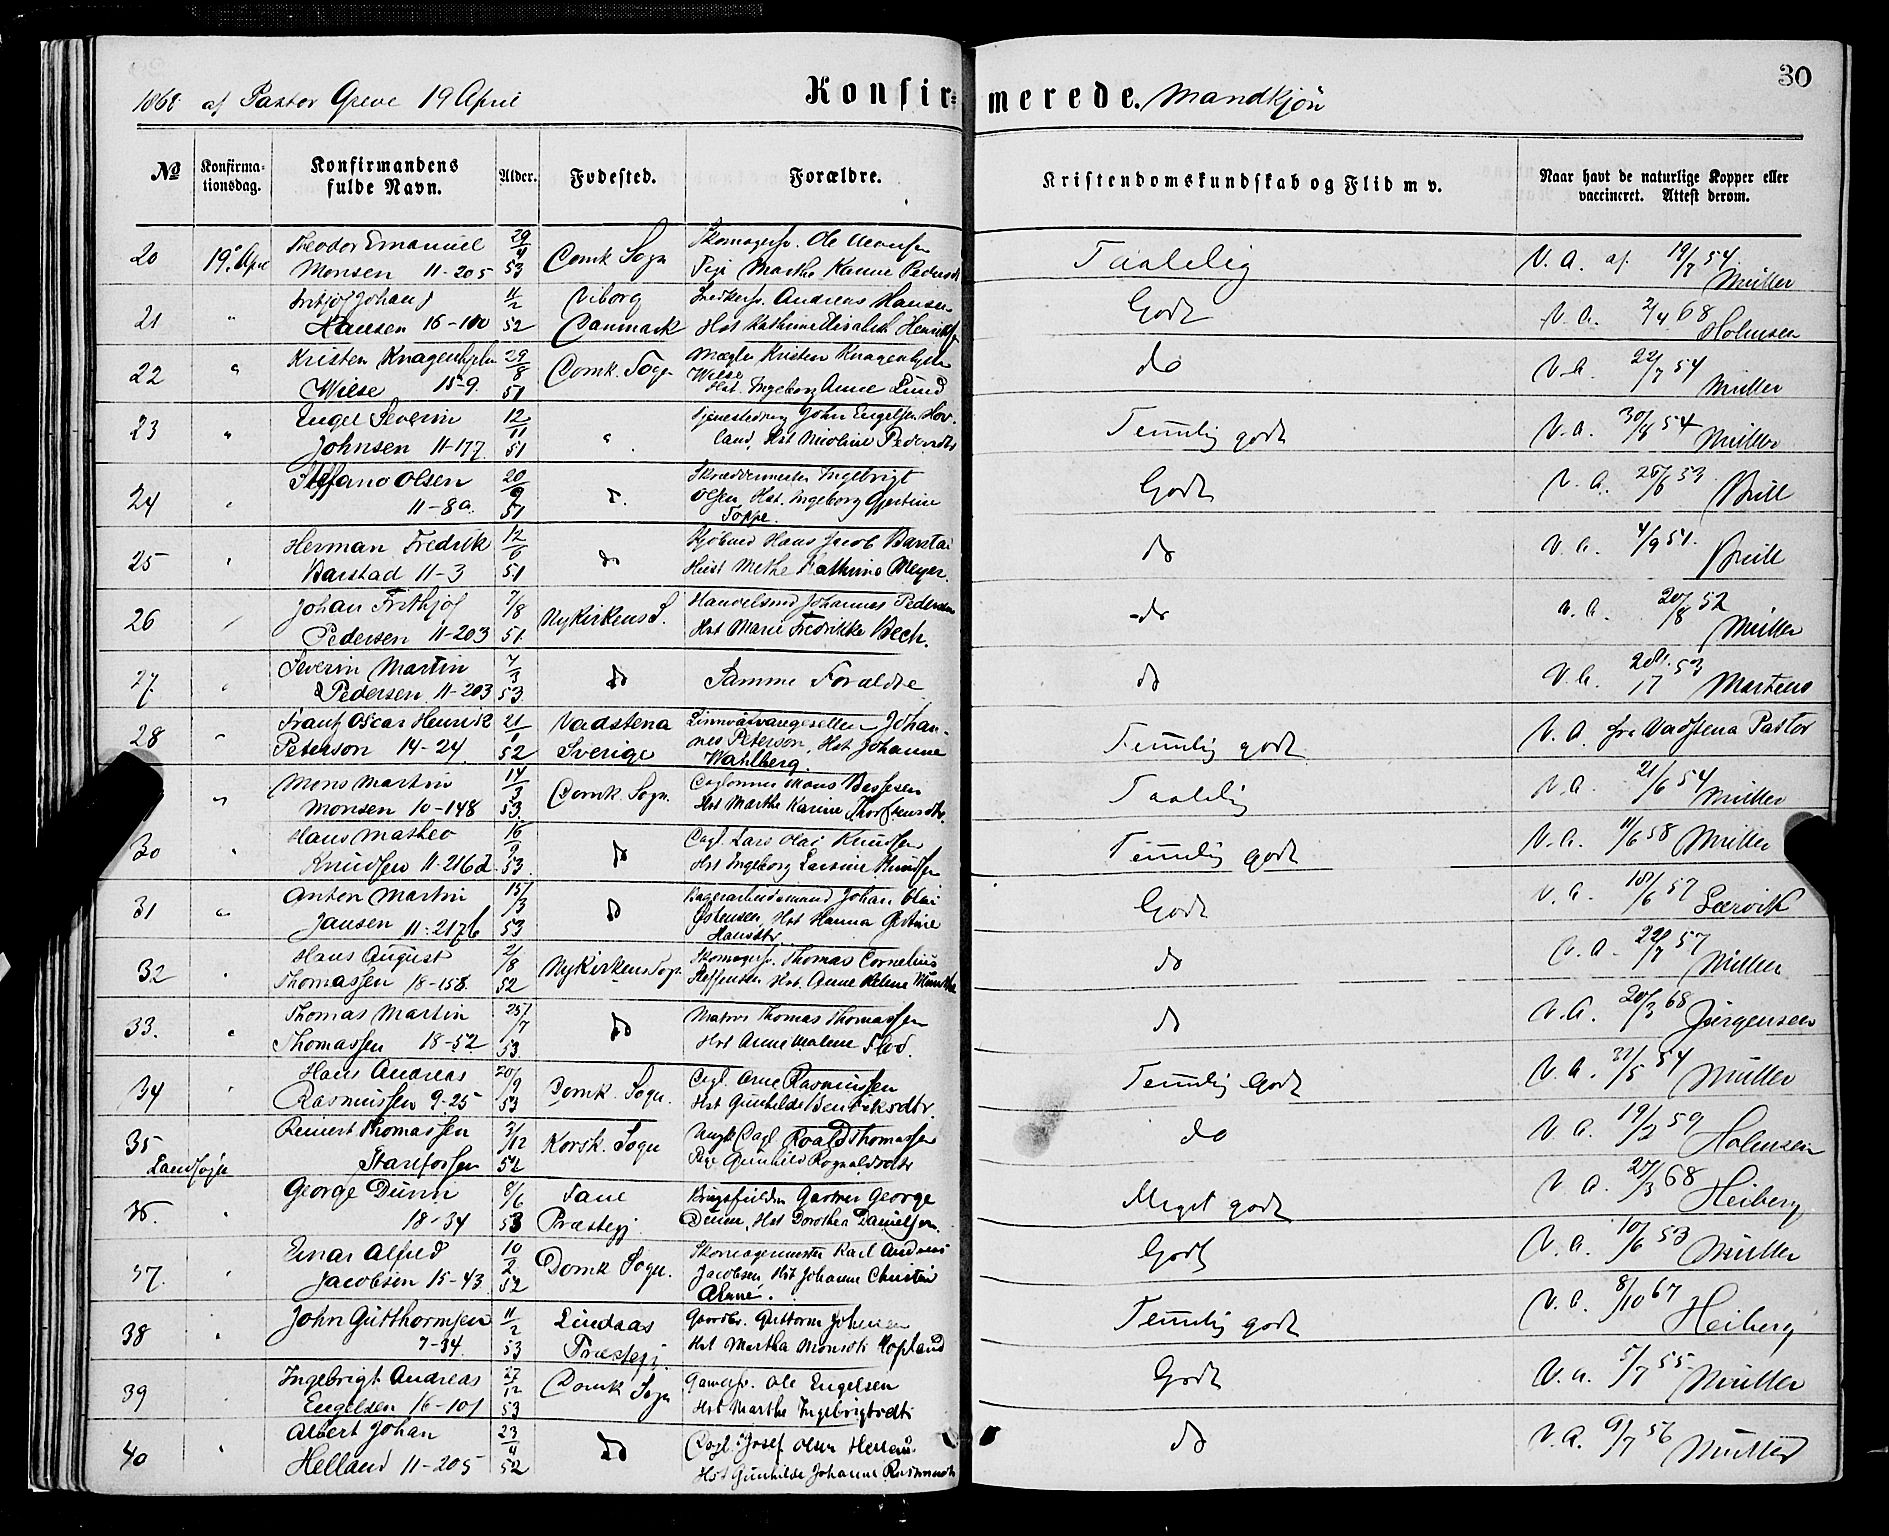 1868 af Pastor Greve 19 April
Konfir=merede. Mandkjön
30
No
Konfirma=tionsdag.
Konfirmandens fulde Navn.
Alder.
Fødested.
Forældre.
Kristendomskundskab og Flid m v.
Naar havt de naturlige Kopper eller vaccineret. Attest derom.
20 19. April Theodor Emanuel 29/4 Domk Sogn Skomagersv. Ole Taalelig V. A. af 19/7 54
Monsen 11-205 53 Pige Marthe Karine Müller
21 " Johan 11/2 Viborg Andreas Hansen Godt V. A. 2/4 68
Hansen 16-100 52 Danmark Hst Kathrine Elisabeth Holmsen
22 " Kristen Knagenhjelm 29/8 Domk. Sogn Mægler Kristen Knagenhjelm do V. A. 22/7 54
Wiese 15-9. 51 Wiese Hst. Ingeborg Anne Lund Müller
23 " Engel Severin 12/11 " John Engelsen Hov= Temlig godt V. A. 30/8 54
Johnsen 11-177 51 land, Hst Nicoline Pedersdtr Müller
24 " Olsen 20/9 " Skræddermester Ingebrigt Godt V. A. 53
11-8a. 51 Olsen Hst. Ingeborg Gjertine Brill
Toppe.
25 " Herman Fredrik 12/6 do Kjöbmd Hans Jacob Barstad do V. A. 4/9 51.
Barstad 11-3 51 Hust Methe Kathrine Meyer. Brill
26 " Johan Frithjof 7/8 Nykirkens S. Handelsmd Johannes Pedersen do V. A. 20/8 52
Pedersen 11-203 51. Hst Marie Fredrikke Bech. Müller
27. " Severin Martin 7/3 do Samme Forældre do V. A. 53
Pedersen 11-203 53. Martens
28 " Frantz Oscar Henrik 21/1 Vadstena Johan- Temlig godt V. A. fra Vadstena Pastor
Peterson 14-24. 52 Sverige nes Peterson, Hst Johanne
Wahlberg.
" Mons Martin 14/3 Domk. Sogn. Mons Taalelig V. A. 21/6 54
Monsen 10-148 53. Hst Marthe Karine Müller
30 " Hans Matheo 16/9 do Dagl. Lars Olai Knudsen Temlig godt V. A. 11/6 58 Müller
Knudsen 11-216d. 53. Hst Ingeborg Larsine Knudsen
31 " Anton Martin 15/3 do Johan Olai Godt V. A. 18/6 57
Jansen 11-217b 53 Hst Hanna Lærvik
Hansdtr.
32 " Hans August 21/8 Nykirkens Sogn Skomagersv. Thomas Cornelius do V. A. 22/7 57
Thomassen 18-158. 52 Steffensen Hst. Anne Helene Müller
33. " Thomas Martin 25/7 do Matros Thomas Thomassen do V. A. 20/3 68
Thomassen 18-52 53. Hst Anne Malene Flod. Jürgensen
34 " Hans Andreas 20/9 Domk. Sogn. Dagl. Arne Rasmussen Temlig Godt V. A. 31/5 54
Rasmussen 9-25 53 Hst Gunhilde Müller
35 Reinert Thomassen 3/12 Korsk. Sogn Ungk. Dagl. Roald Thomassen do V. A. 19/2 59
Landsogn 52 Pige Gunhild Rognaldsdtr Holmsen
36. " George Dunn 8/6 Fane Gartner George Meget godt V. A. 27/3 68
18-34 53 Præstegj Dunn, Hst Dorothea Danielsen. Heiberg
37. " Einar Alfred 10/2 Domk Sogn. Skomagermester Karl Andreas Godt V. A. 10/6 53
Jacobsen 15-43. 52 Jacobsen, Hst Johanne Christine Müller
38 " John Gutthormsen 11/2 Lindaas Gaardbr. Guttorm Johnsen Temlig godt V. A. 8/10 67
7-34. 53 Præstegj. Hst Martha Monsdtr Hopland Heiberg
39 " Ingebrigt Andreas 27/12 Domk Sogn Ole Engelsen Godt V. A. 5/7 55
Engelsen 16-101 53 Hst Marthe Ingebrigtsdtr Müller
40 " Albert Johan 23/4 do Dagl. Josef Olsen do V. A. 9/7 56
Helland 11-205 52 Hst Gunhilde Johanne Müller